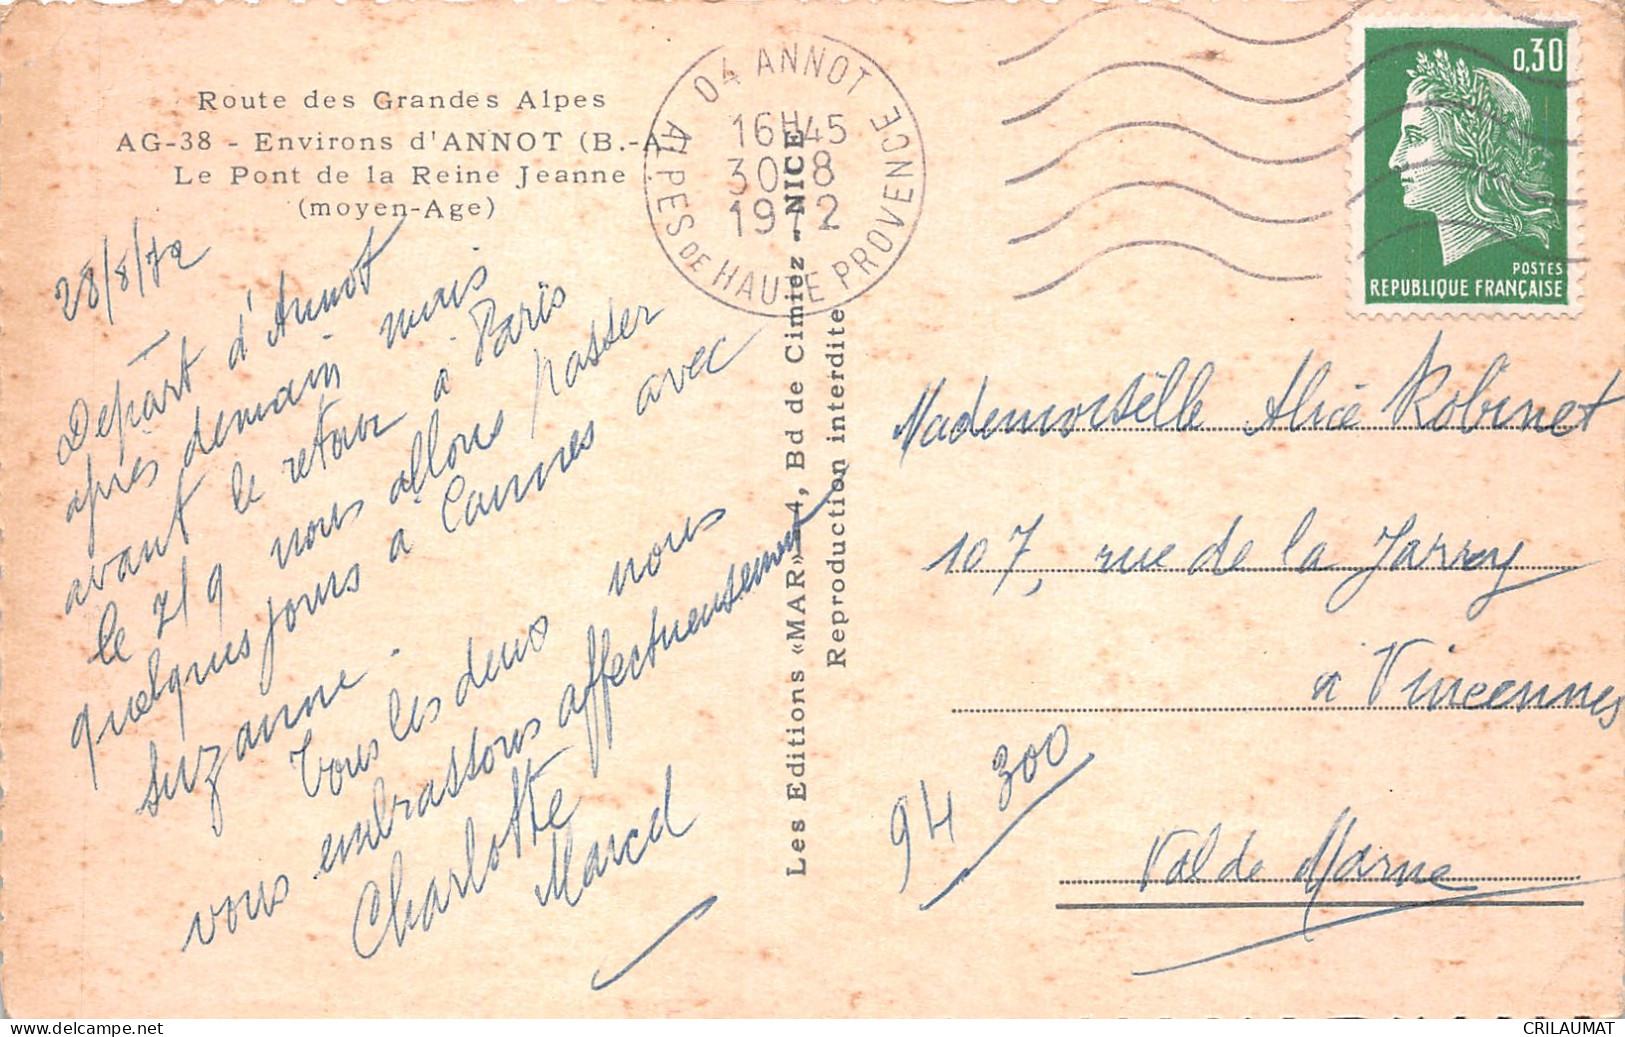 Route des Grandes Alpes
AG-38 - Environs d'ANNOT (B.-A.)
Le Pont de la Reine Jeanne
(moyen-Age)
28/8/72
Départ d'Annot
après demain mais
avant le retour à Paris
le 7/9 nous allons passer
quelques jours à Cannes avec
Suzanne.
Tous les deux nous
vous embrassons affectueusement
Charlotte
Marcel
Les Editions «MAR» 4, Bd de Cimiez - NICE
Reproduction interdite
04 ANNOT
16H45
30-8
1972
ALPES DE HAUTE PROVENCE
0,30
POSTES
REPUBLIQUE FRANÇAISE
Mademoiselle Alice Robinet
107, rue de la Jarry
à Vincennes
94 300
Val de Marne
www.delcampe.net
CRILAUMAT